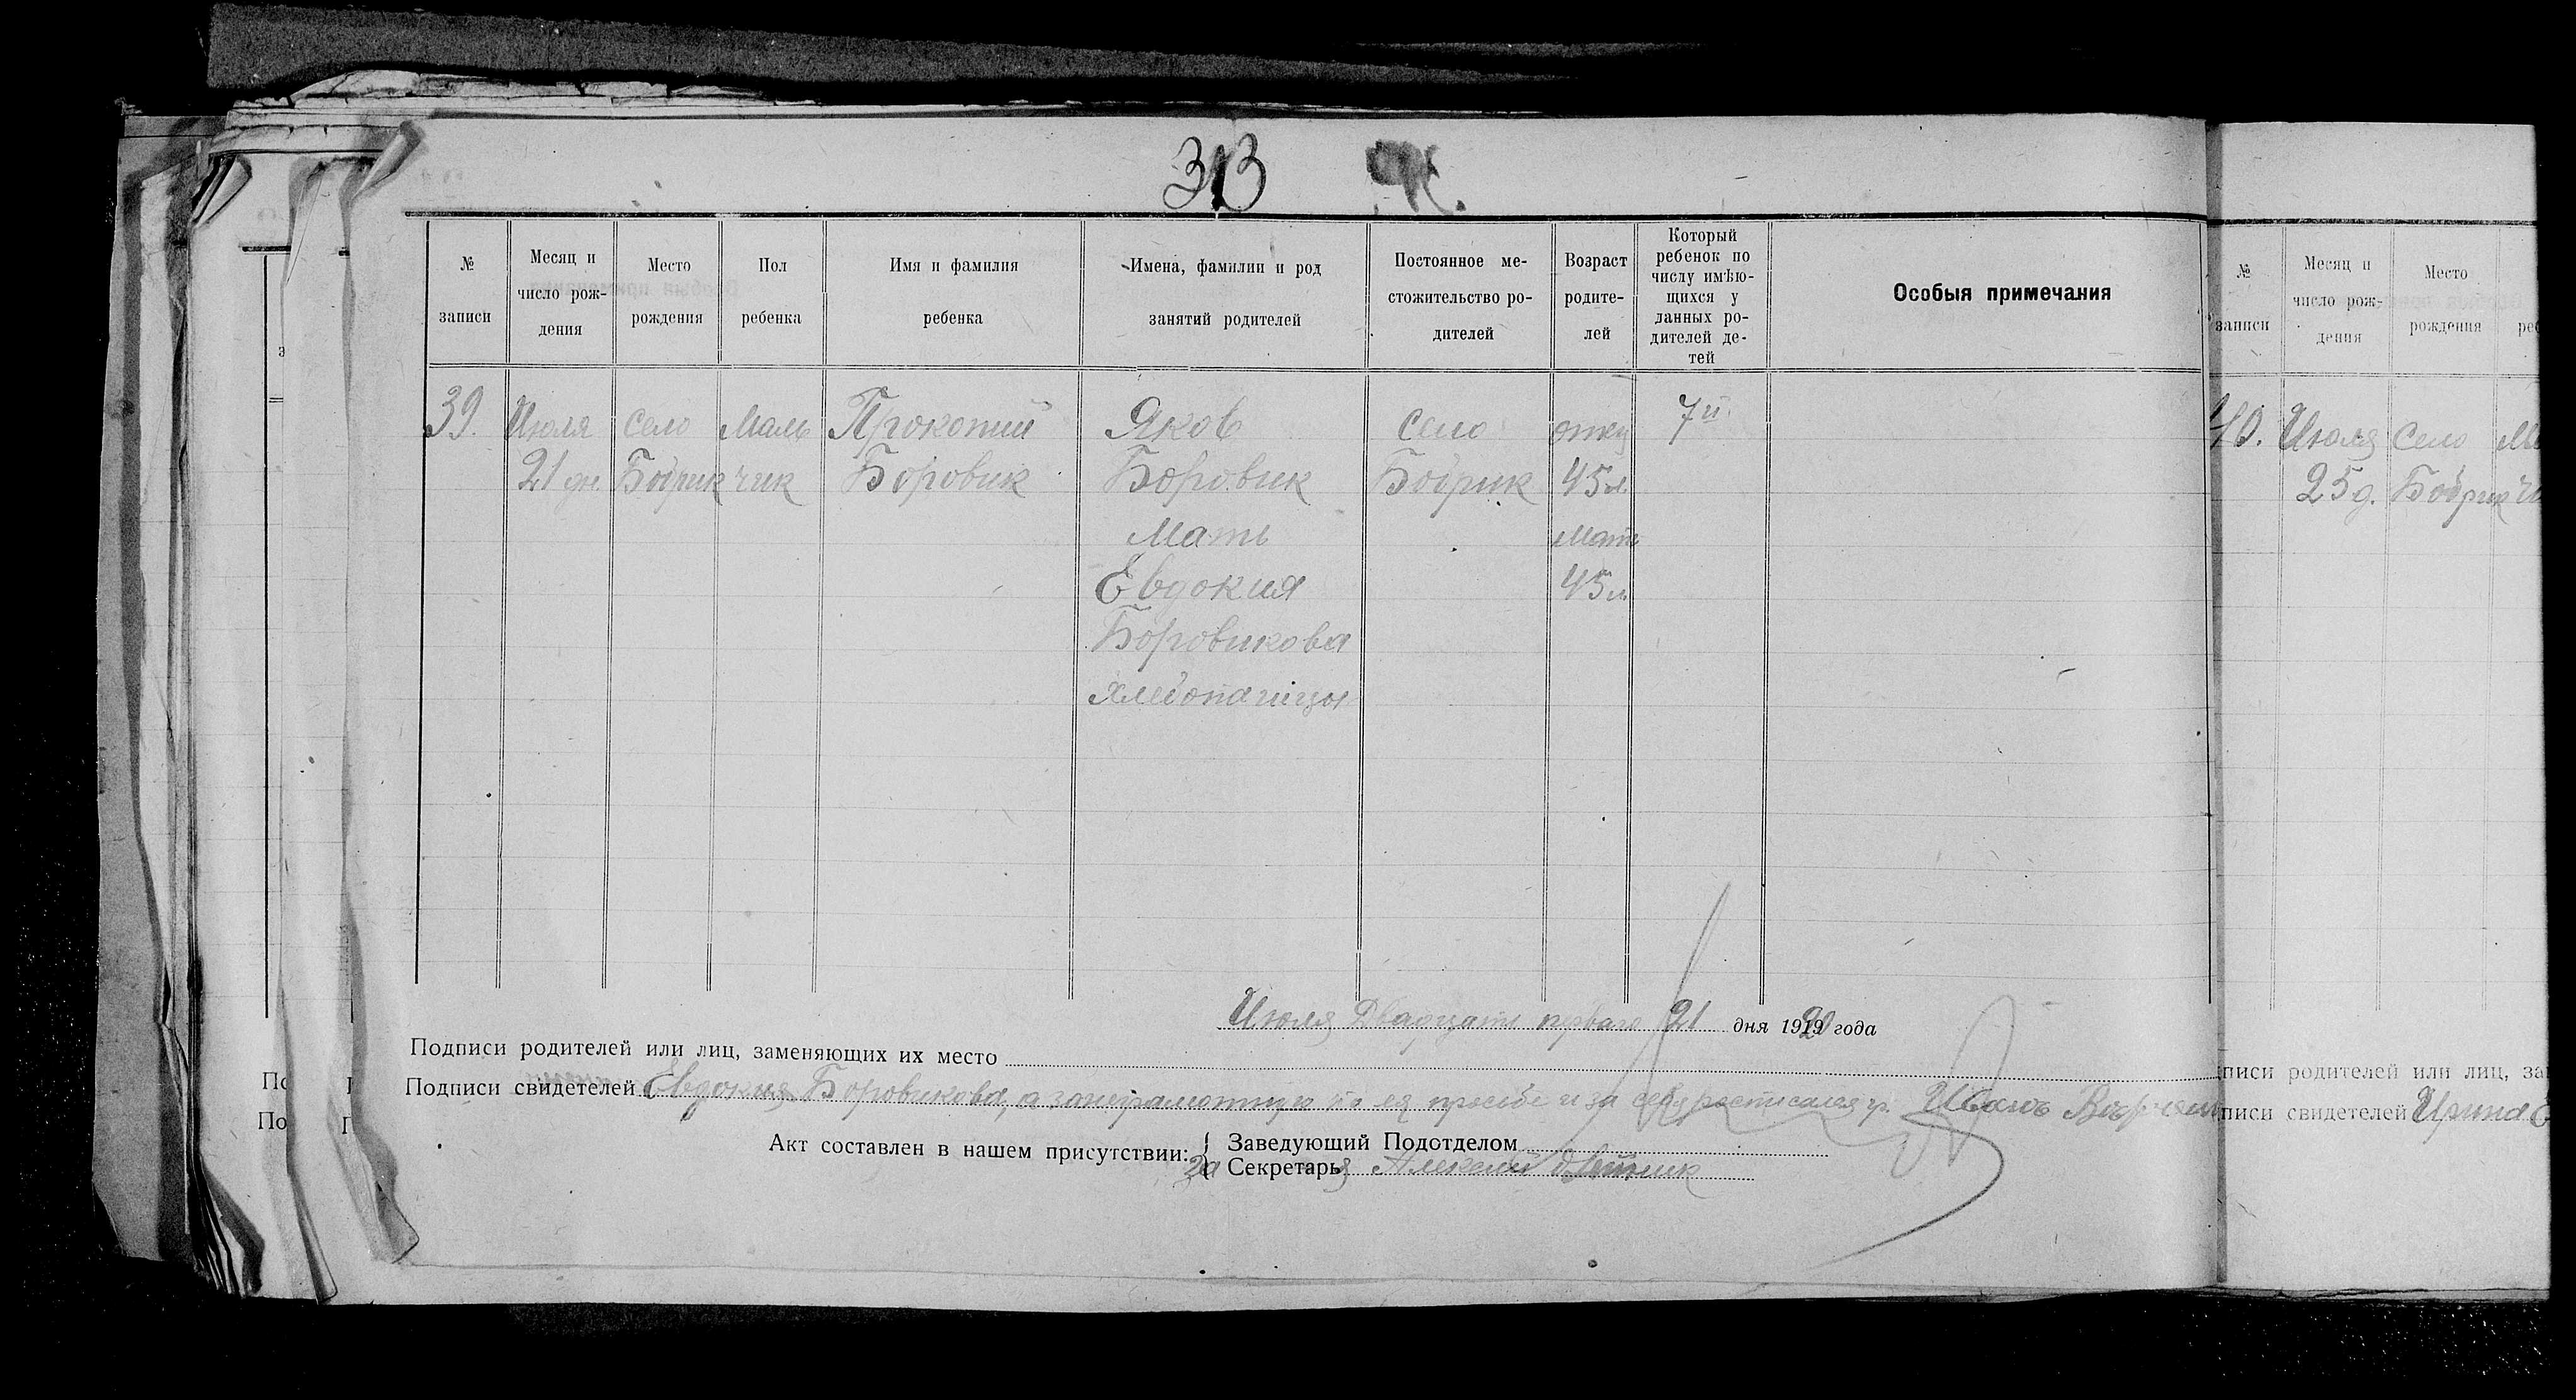 313
№ записи
Месяц и число рож-дения
Место рождения
Пол ребенка
Имя и фамилия ребенка
Имена, фамилии и род занятий родителей
Постоянное ме-стожительство ро-дителей
Возраст родите-лей
Который ребенок по числу имѣю-щихся у данных ро-дителей де-тей
Особыя примечания
39. Июля село Маль Прокопий Яков село отец 7й
21 дн. Бобрик чик Боровик Боровик Бобрик 45 л.
Мать Мать
Евдокия 45 л.
Боровикова
Хлебопашцы
Июля Двадцать перваго 21 дня 1920 года
Подписи родителей или лиц, заменяющих их место
Подписи свидетелей Евдокия Боровикова, а за неграмотную по ея просьбе и за себя росписался гр. Иванъ
Акт составлен в нашем присутствии:
Заведующий Подотделом
За Секретаря Алексей
№ записи
Месяц и число рож-дения
Место рождения
40. Июля село
25 д. Бобрик
писи родителей или лиц, за
писи свидетелей Ирина